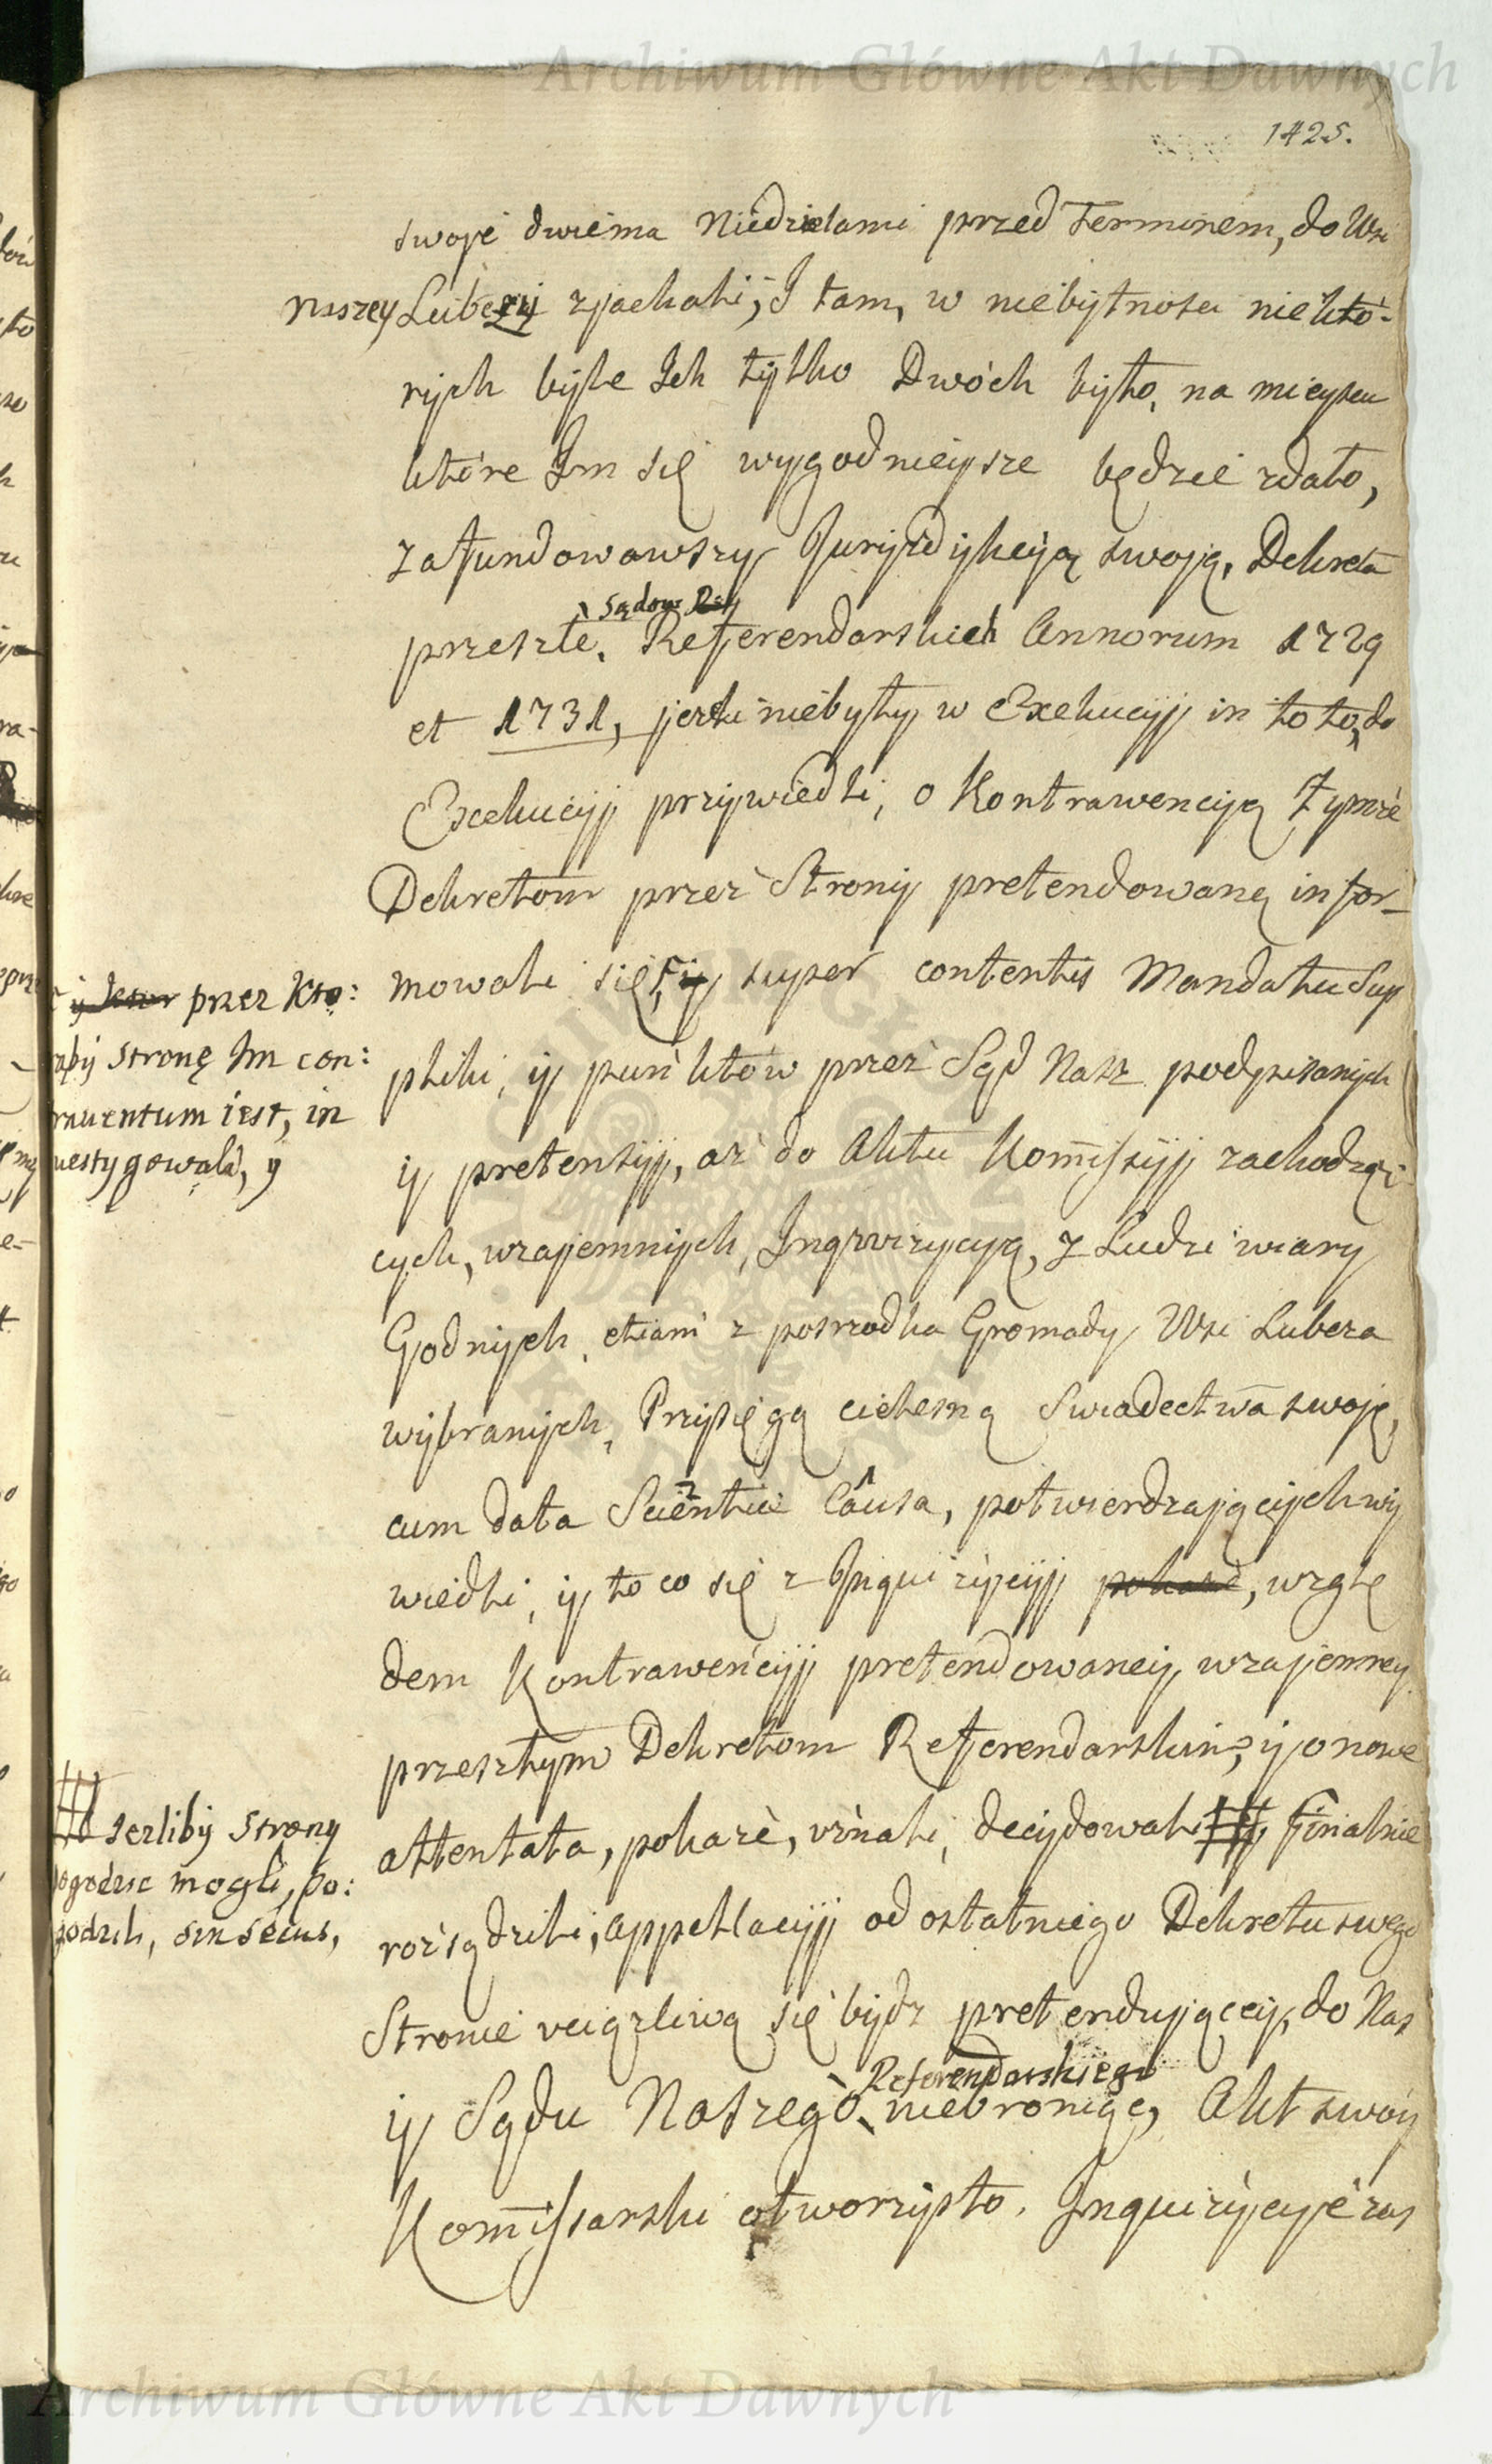 Archiwum Główne Akt Dawnych
1425.
swoje dwiema Niedzielami przed Terminem, do Wsi
naszey Luberzy zjachali, J tam, w niebytnosci niektó-
rych byle Jch tylko Dwóch było, na mieyscu
które Jm się wygodnieysze będzie zdało,
zafundowawszy Juryzdykcyą swoją, Dekreta
Sądow
przeszłe, Referendarskich Annorum 1729
et 1731, jeżli niebyły w Exekucyj in toto, do
Exekucyj przywiedli, o Kontrawencyą tymże
Dekretom przez Strony pretendowaną infor-
mowali się, y super contentis Mandatu Sup
pliki, y punktów przez Sąd Nasz podpisanych
y pretensyj, aż do Aktu Komissyj zachodzą-
cych, wzajemnych, Jnqwizycyą, z Ludzi wiary
Godnych, etiam z posrzodka Gromady Wsi Lubcza
wybranych, Przysięgą cielesną Swiadectwa swoje,
cum data Scientiæ Causa, potwierdzających wy
wiedli, y to co się z Jnquizycyj pokaże, wzglę
dem Kontrawencyj pretendowaney, wzajemney
przeszłym Dekretom Referendarskim, y o nowe
attentata, pokaże, uznali, decydowali # finalnie
rozsądzili, appellacyj od ostatniego Dekretu swego
Stronie uciążliwą się bydz pretendującey, do Nas
Referendarskiego
y Sądu Naszego niebroniąc, Akt swoy
Komissarski otworzysto. Jnquizycye zas
przez Kto:
rąby stronę Jm con:
rauentum iest, in
uestygowali, y
# Jezliby Strony
pogodzic mogli, po:
godzili, sin secus,
Archiwum Główne Akt Dawnych